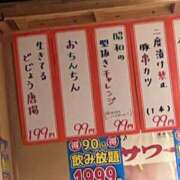 二度漬け禁止
豚串カツ
(1本)
99円
昭和の
型抜きチャレンジ
99円
おちんちん
99円
生きてる
どじょう唐揚
199円
得 90分 得
飲み放題
1999
サワー